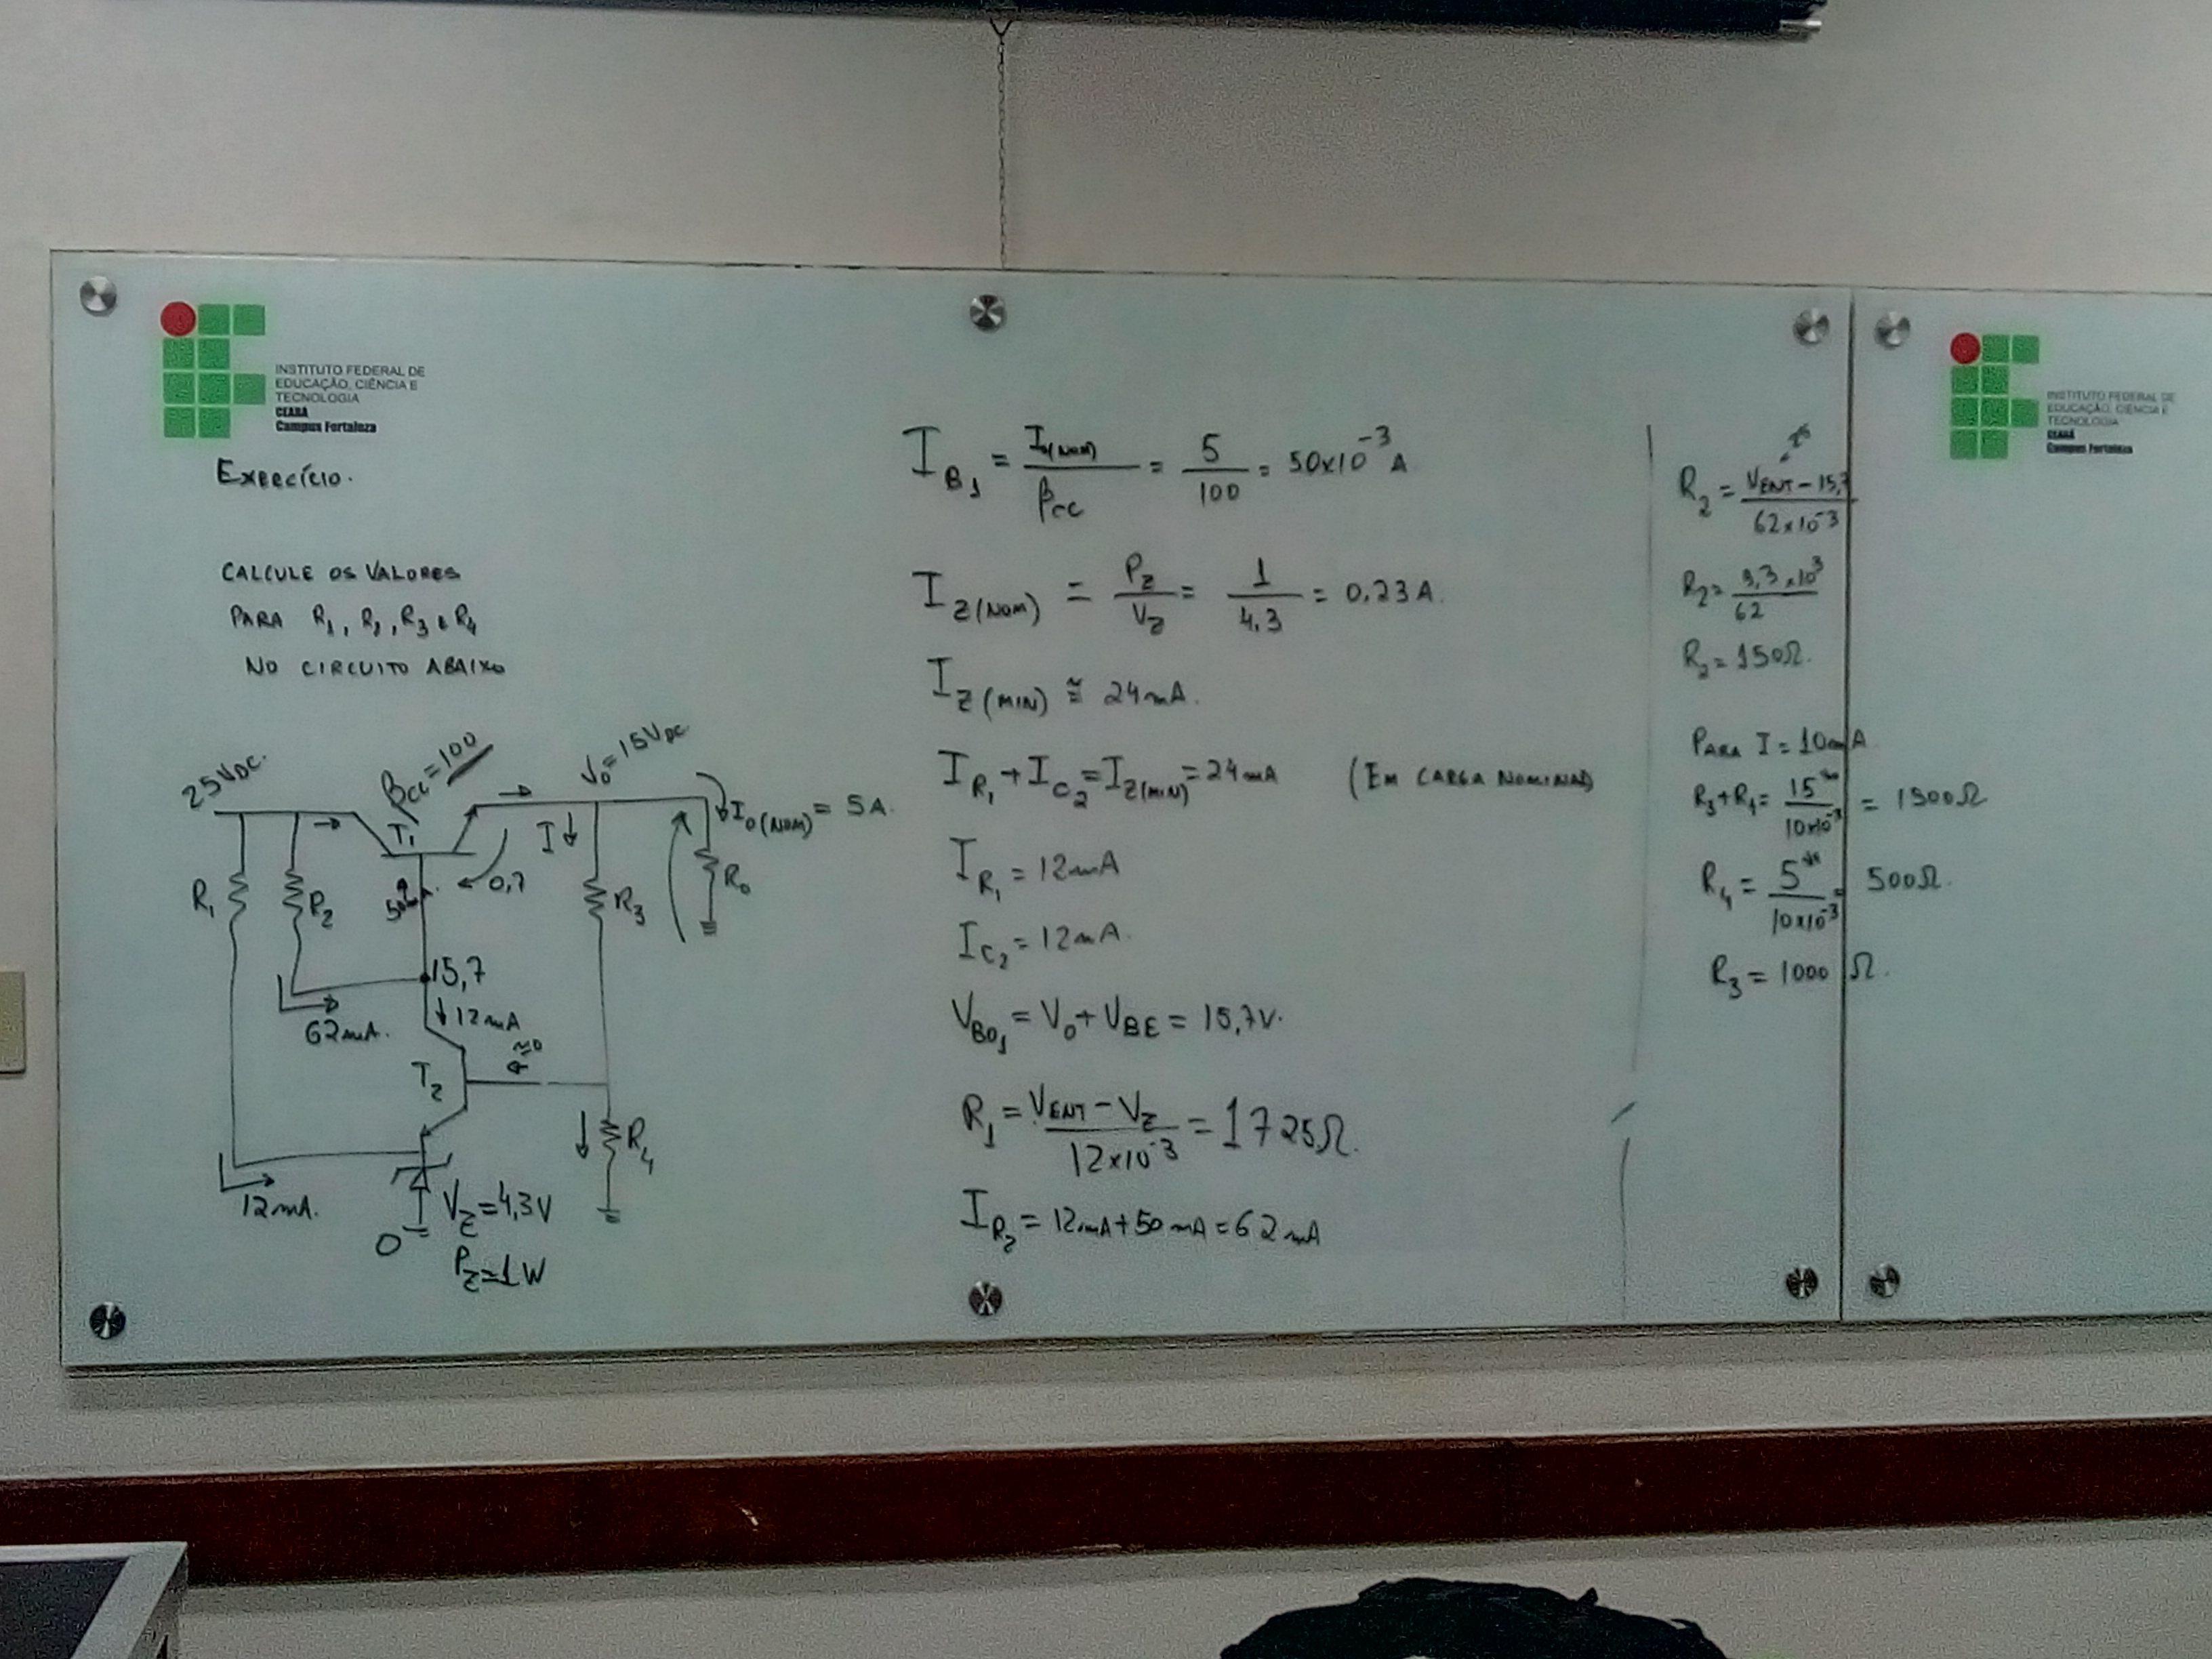 INSTITUTO FEDERAL DE
EDUCAÇÃO, CIÊNCIA E
TECNOLOGIA
CEARÁ
Campus Fortaleza
EXERCÍCIO.
CALCULE OS VALORES
PARA R₁, R₂, R₃ E R₄
NO CIRCUITO ABAIXO
25 VDC.
βcc = 100
V₀ = 15 VDC
I₀(NOM) = 5A.
T₁
I
0,7
R₁
R₂
R₃
R₀
15,7
62mA.
12mA
≈0
T₂
R₄
12mA.
V_Z = 4,3V
0
P_Z = 1W
I_B₁ = I₀(NOM) / βcc = 5 / 100 = 50x10⁻³ A
I_Z(NOM) = P_Z / V_Z = 1 / 4,3 = 0,23 A.
I_Z(MIN) ≅ 24mA.
I_R₁ + I_C₂ = I_Z(MIN) = 24mA (EM CARGA NOMINAL)
I_R₁ = 12mA
I_C₂ = 12mA.
V_B0₁ = V₀ + V_BE = 15,7V.
R₁ = V_ENT - V_Z / 12x10⁻³ = 1725Ω.
I_R₂ = 12mA + 50mA = 62mA
R₂ = V_ENT - 15,7 / 62x10⁻³
R₂ = 9,3 x10³ / 62
R₂ = 150Ω.
PARA I = 10mA
R₃ + R₄ = 15 / 10x10⁻³ = 1500Ω
R₄ = 5 / 10x10⁻³ = 500Ω.
R₃ = 1000 Ω.
INSTITUTO FEDERAL DE
EDUCAÇÃO, CIÊNCIA E
TECNOLOGIA
CEARÁ
Campus Fortaleza